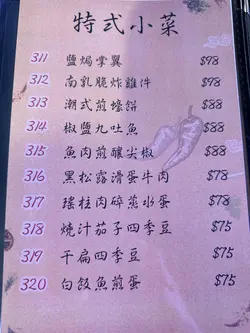 特式小菜
311 鹽焗掌翼 $98
312 南乳脆炸雞件 $98
313 潮式煎蠔餅 $88
314 椒鹽九吐魚 $88
315 魚肉煎釀尖椒 $88
316 黑松露滑蛋牛肉 $78
317 瑤柱肉碎蒸水蛋 $78
318 燒汁茄子四季豆 $75
319 干扁四季豆 $75
320 白飯魚煎蛋 $75